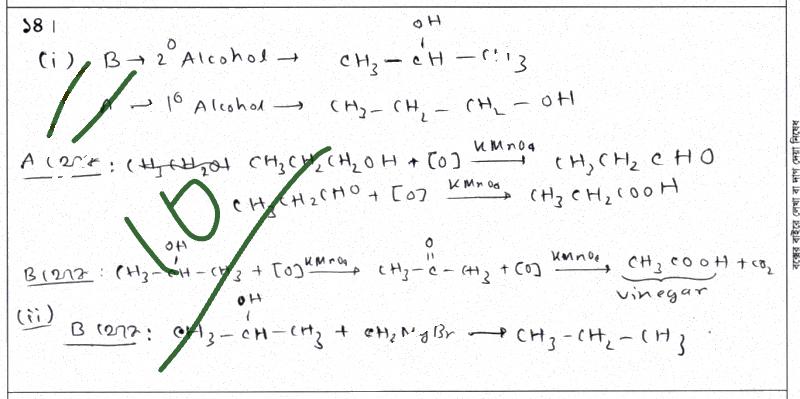 ১৪।
OH
(i) B → 2° Alcohol → CH₃ – CH – CH₃
A → 1° Alcohol → CH₃ – CH₂ – CH₂ – OH
A হতে : CH₃CH₂OH CH₃CH₂CH₂OH + [O] KMnO₄ → CH₃CH₂CHO
CH₃CH₂CHO + [O] KMnO₄ → CH₃CH₂COOH
10
OH O
B হতে : CH₃–CH–CH₃ + [O] KMnO₄ → CH₃–C–CH₃ + [O] KMnO₄ → CH₃COOH + CO₂
vinegar
(ii) OH
B হতে : CH₃–CH–CH₃ + CH₂MgBr → CH₃–CH₂–CH₃
বক্সের বাইরে লেখা বা দাগ দেয়া নিষেধ